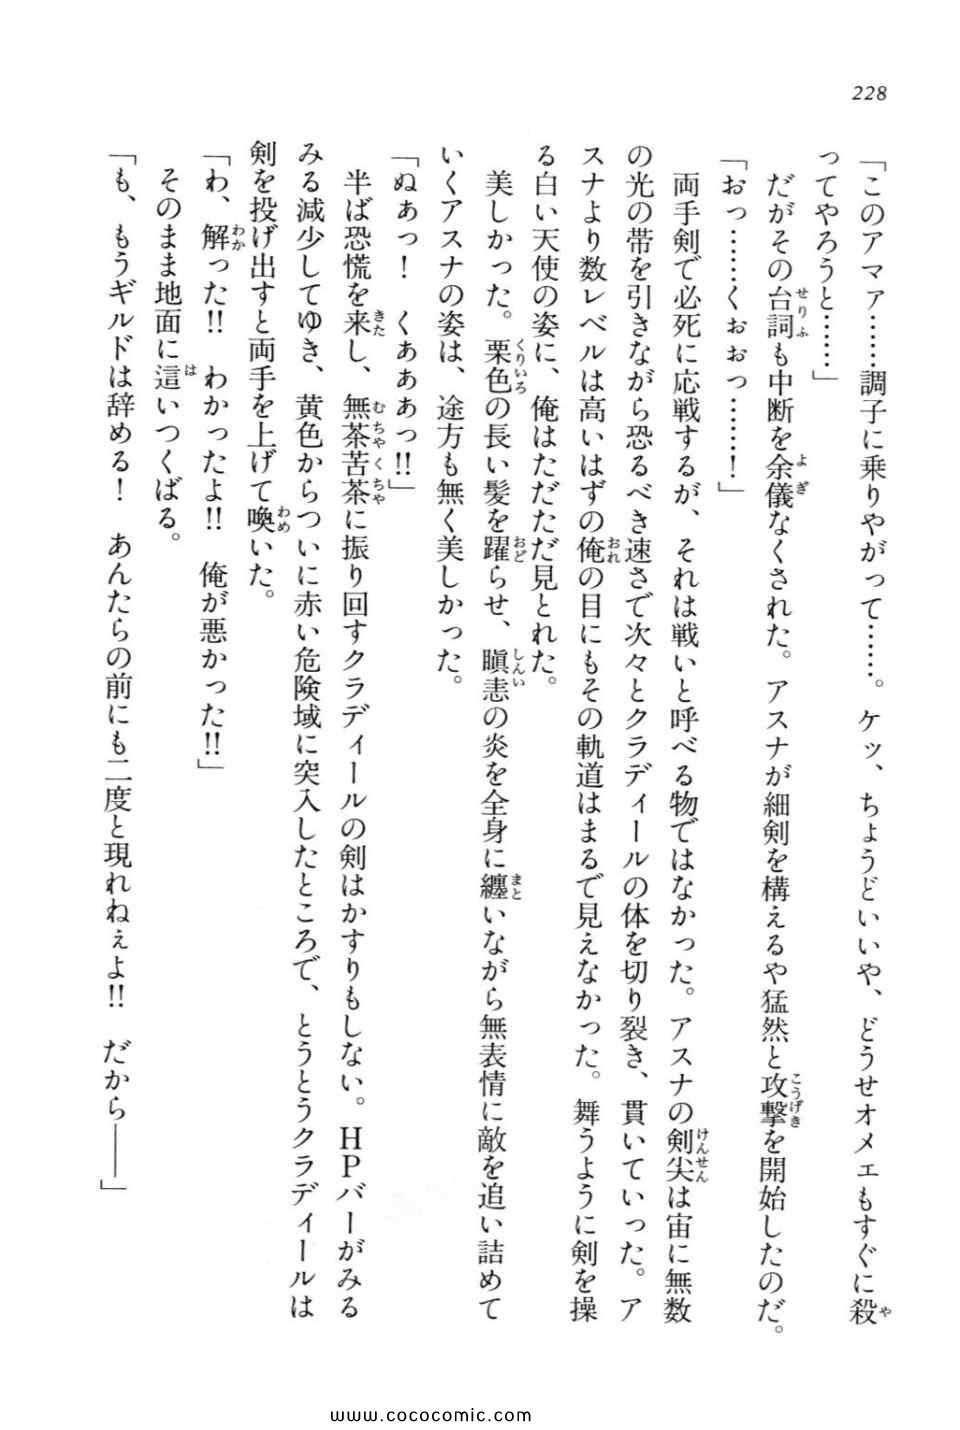 228
「このアマァ……調子に乗りやがって……。ケッ、ちょうどいいや、どうせオメェもすぐに殺
ってやろうと……」
だがその台詞も中断を余儀なくされた。アスナが細剣を構えるや猛然と攻撃を開始したのだ。
「おっ……くぉぉっ……！」
両手剣で必死に応戦するが、それは戦いと呼べる物ではなかった。アスナの剣尖は宙に無数
の光の帯を引きながら恐るべき速さで次々とクラディールの体を切り裂き、貫いていった。ア
スナより数レベルは高いはずの俺の目にもその軌道はまるで見えなかった。舞うように剣を操
る白い天使の姿に、俺はただただ見とれた。
美しかった。栗色の長い髪を躍らせ、瞋恚の炎を全身に纏いながら無表情に敵を追い詰めて
いくアスナの姿は、途方も無く美しかった。
「ぬぁっ！　くぁああっ!!」
半ば恐慌を来し、無茶苦茶に振り回すクラディールの剣はかすりもしない。HPバーがみる
みる減少してゆき、黄色からついに赤い危険域に突入したところで、とうとうクラディールは
剣を投げ出すと両手を上げて喚いた。
「わ、解った!!　わかったよ!!　俺が悪かった!!」
そのまま地面に這いつくばる。
「も、もうギルドは辞める！　あんたらの前にも二度と現れねぇよ!!　だから――」
www.cococomic.com